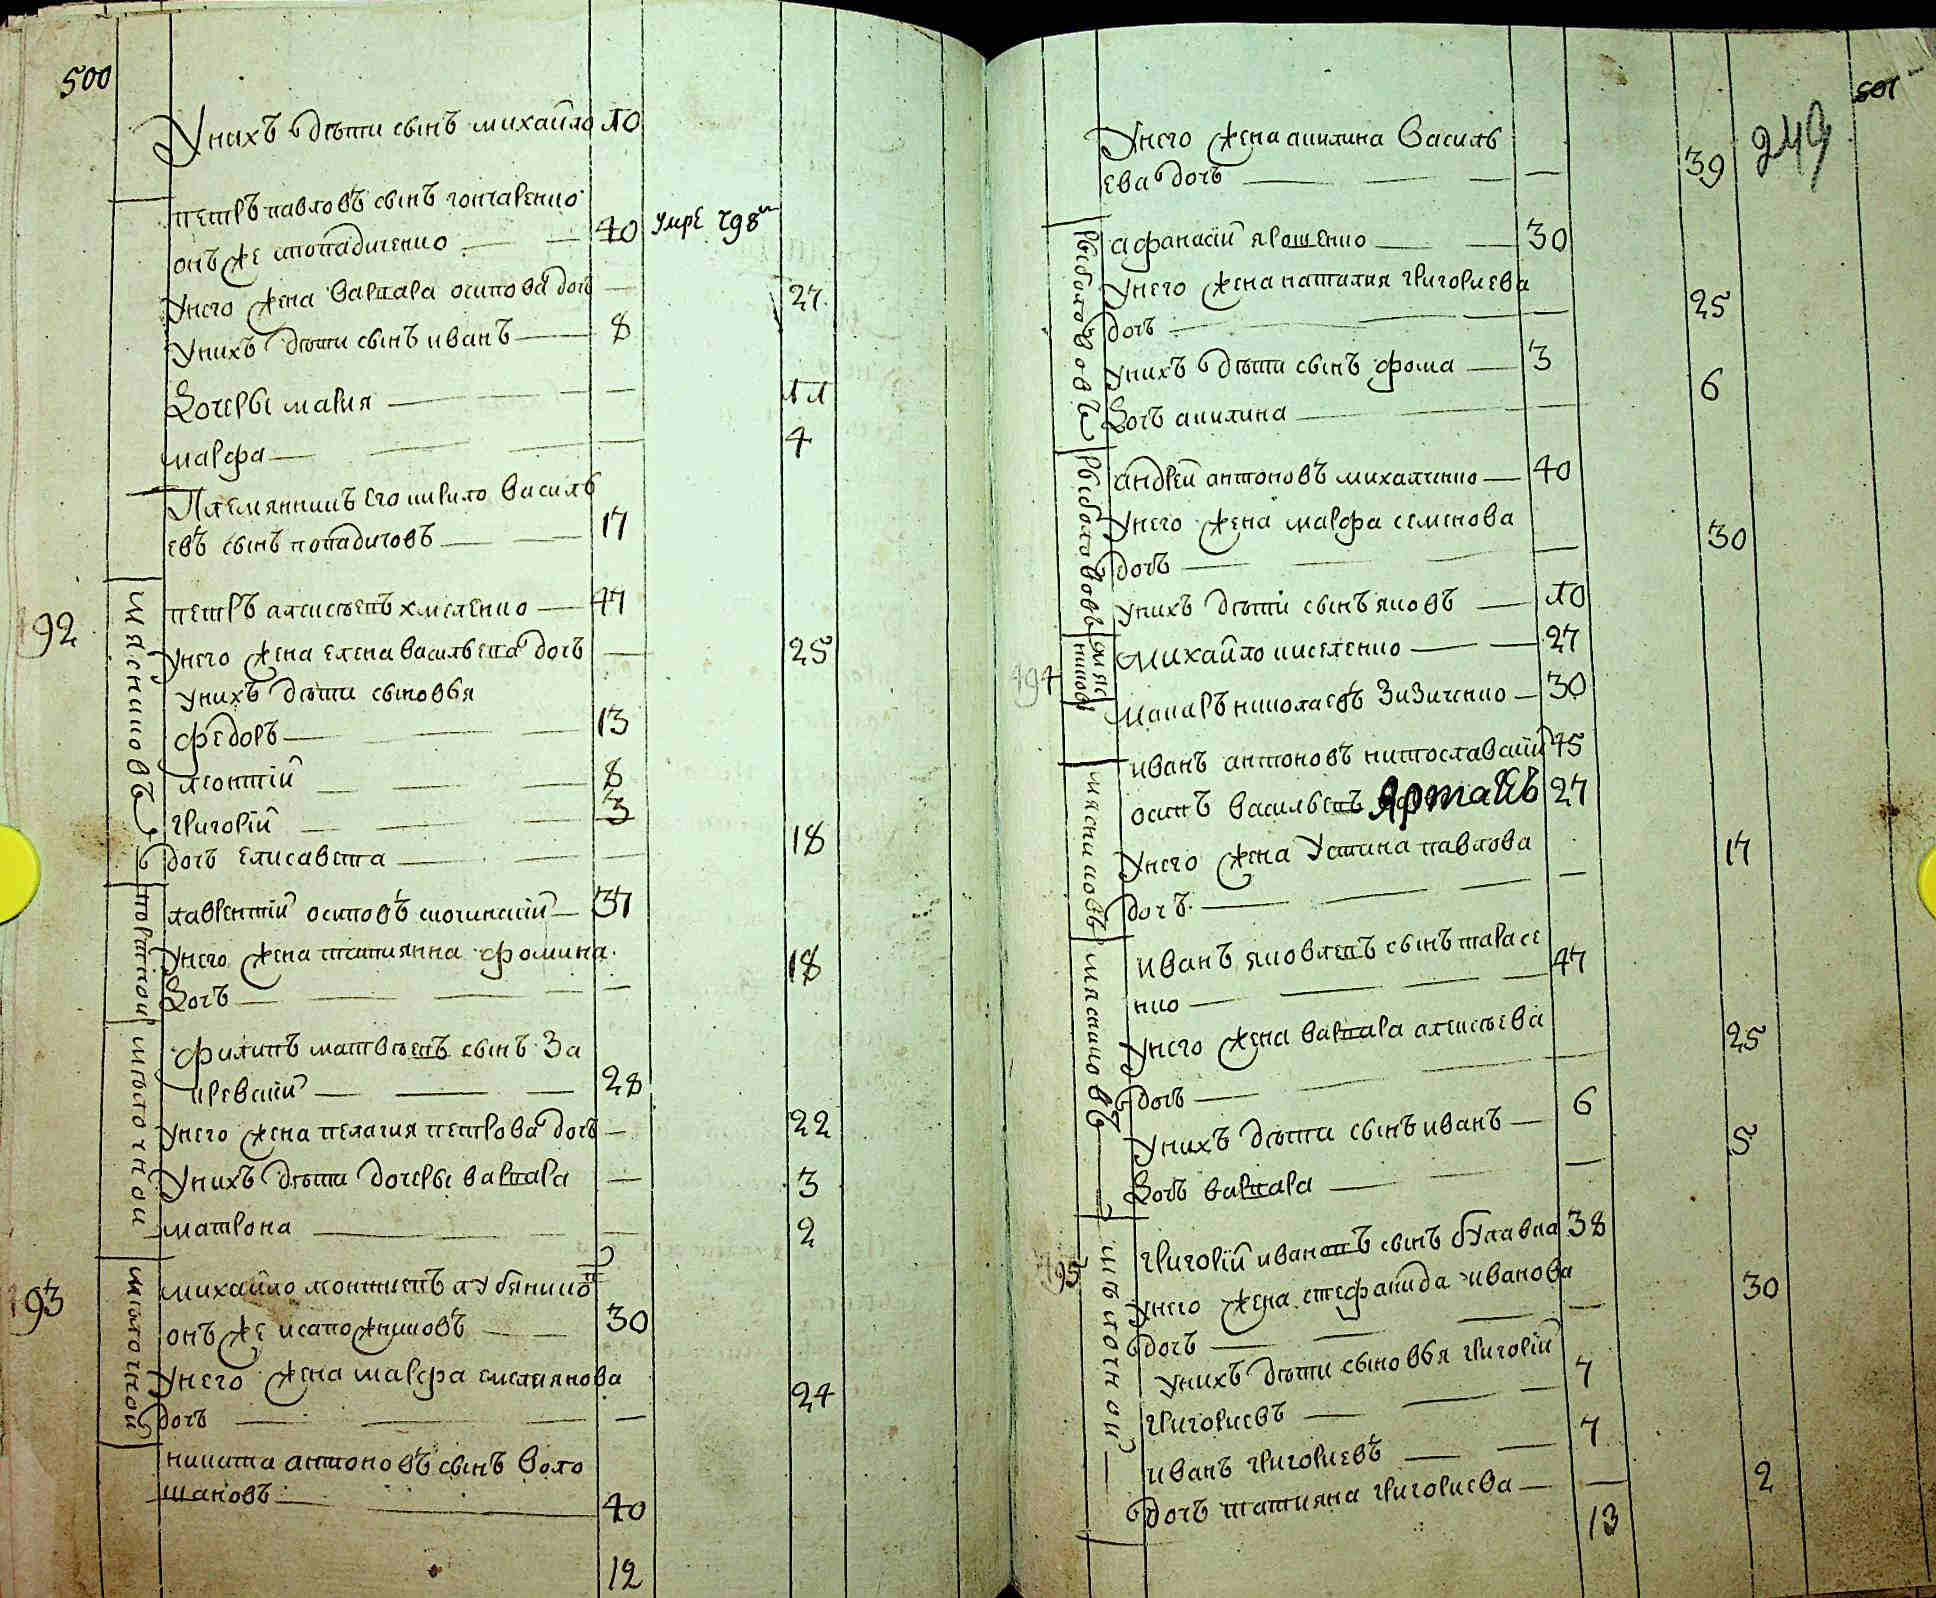 500
Унихъ дѣти сынъ михайло 10
петръ павловъ сынъ гончаренко
онъ же и попадиченко 40 умре 798
Унего жена варвара осипова дочь 27
Унихъ дѣти сынъ иванъ 8
Дочеры мария 11
марфа 4
Племянникъ его кирило василь
евъ сынъ попадичовъ 17
92
мясниковъ
петръ алексѣевъ хмеленко 47
Унего жена елена васильева дочь 25
унихъ дѣти сыновья
федоръ 13
леонтій 8
григорій 3
дочь елисавета 18
портной
лаврентий осиповъ 37
Унего жена татиянна фомина
Дочь 18
шмоточной
филипъ матвѣевъ сынъ За
кревскій 28
Унего жена пелагия петрова дочь 22
Унихъ дѣти дочеры варвара 3
матрона 2
93
михайло леонтиевъ
онъ же и сапожниковъ 30
Унего жена марфа емелиянова
дочь 24
никита антоновъ сынъ воло
шановъ 40
12
501
249
Унего жена акилина василь
ева дочь 39
рыболововъ
афанасий ярошенко 30
Унего жена наталия григориева
дочь 25
унихъ дѣти сынъ фома 3
Дочь акилина 6
рыболововъ
андрей антоновъ михалченко 40
Унего жена марфа семенова
дочь 30
унихъ дѣти сынъ яковъ 10
194
мясниковъ
михайло киселенко 27
макаръ николаевъ Зизиченко 30
иванъ антоновъ 45
мясниковъ
осипъ васильевъ Артаевъ 27
Унего жена устина павлова
дочь 17
мясниковъ
иванъ яковлевъ сынъ тарасе
нко 47
Унего жена варвара алексѣева
дочь 25
Унихъ дѣти сынъ иванъ 6
Дочь варвара 5
195
григорій ивановъ сынъ булавка 38
Унего жена стефанида иванова
дочь 30
унихъ дѣти сыновья григорій
григориевъ 7
иванъ григориевъ 7
дочь татияна григориева 2
13